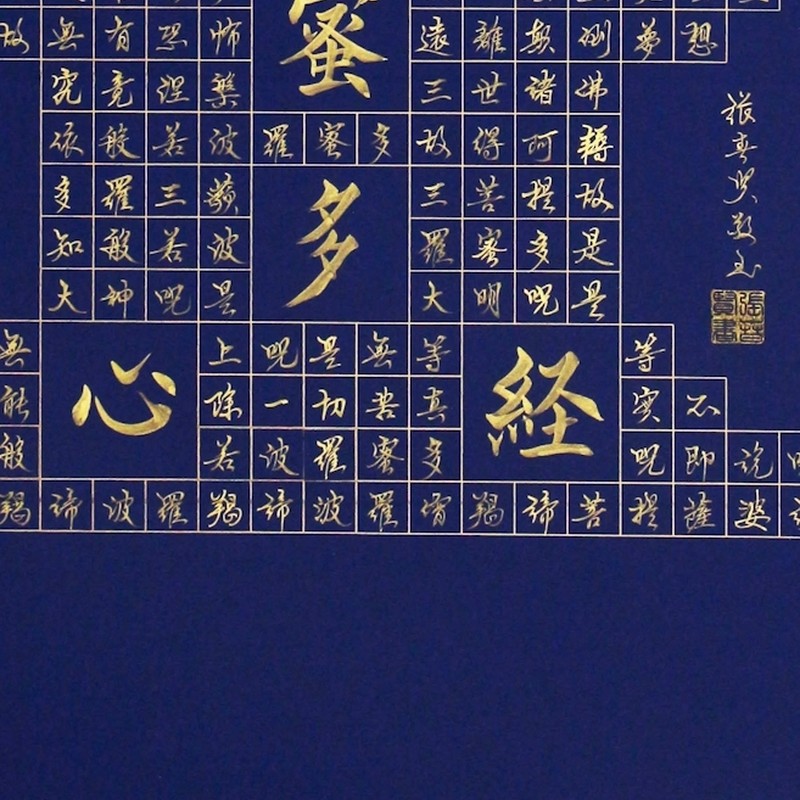 故無有恐怖 遠離顛倒夢想
蜜
究竟涅槃 三世諸佛
依般若波羅蜜多故得阿耨
多羅三藐 三菩提故
多
知般若波 羅蜜多是
大神咒是 大明咒是
無 上咒是無等 等
心 経
能 除一切苦真 實不
般 若波羅蜜多 咒即說
羯諦波羅羯諦波羅僧羯諦菩提薩婆